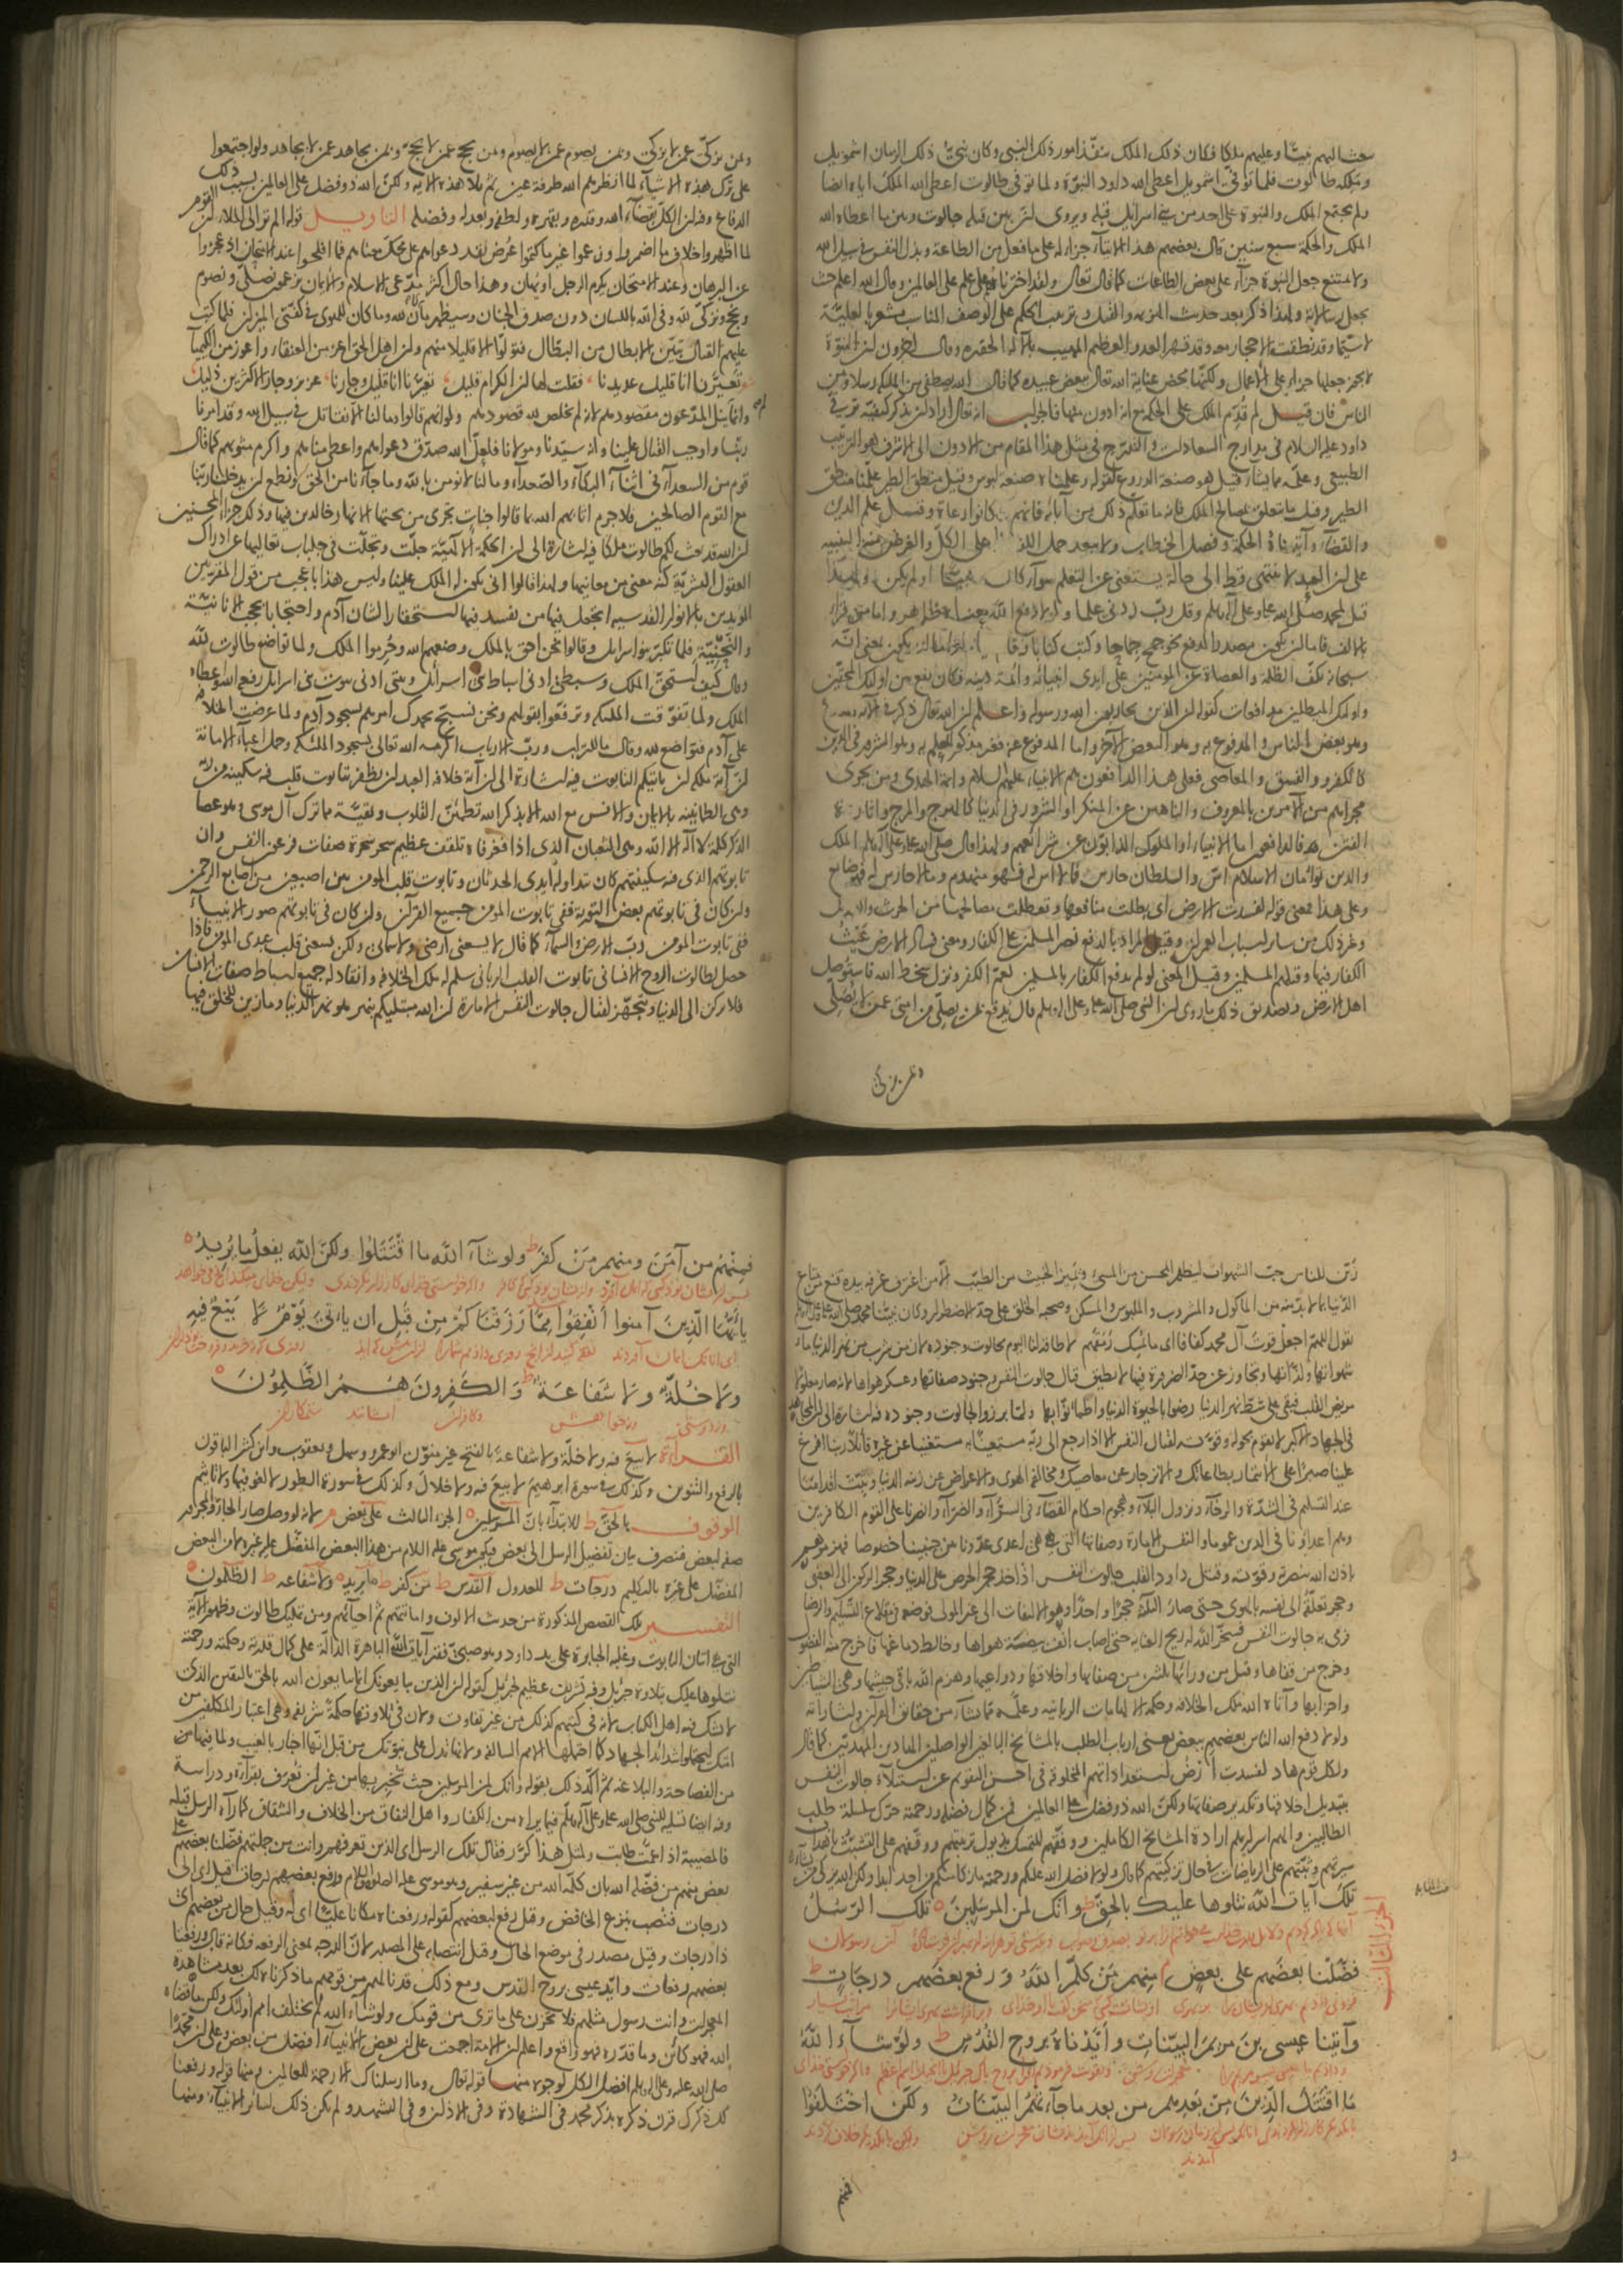 يبعث اليهم نبيا وعليهم ملكا فكان ذلك الملك ينفذ امور ذلك النبي وكان نبي ذلك الزمان اشمويل
وملكه طالوت فلما توفي اشمويل اعطى الله داود النبوة ولما توفي طالوت اعطى الله الملك اياه ايضا
ولم يجتمع الملك والنبوة على احد من بني اسرائيل قبله ويروى ان بين قتله جالوت وبين ما اعطاه الله
الملك والحكمة سبع سنين قال بعضهم هذا الايتاء جزاء له على ما فعل من الطاعة وبذل النفس في سبيل الله
ولا يمتنع جعل النبوة جزاء على بعض الطاعات كما قال تعالى ولقد اخترناهم على علم على العالمين وقال الله اعلم حيث
يجعل رسالاته ولهذا ذكر بعد حديث الهزيمة والقتل وترتيب الحكم على الوصف المناسب مشعر بالعلية
لا سيما وقد نطقت الاحجار معه وقد قهر العدو العظيم المهيب بالآلة الحقيرة وقال آخرون ان النبوة
لا يجوز جعلها جزاء على الاعمال ولكنها محض عناية الله تعالى ببعض عبيده كما قال الله يصطفي من الملئكة رسلا ومن
الناس فان قيل لم قدم الملك على الحكمة مع انه ادون منها فالجواب انه تعالى اراد ان يذكر كيفية ترقي
داود عليه السلام في مدارج السعادات والتدرج في مثل هذا المقام من الادون الى الاشرف هو الترتيب
الطبيعي وعلمه مما يشاء قيل هو صنعة الدروع لقوله وعلمناه صنعة لبوس وقيل منطق الطير علمنا منطق
الطير وقيل ما يتعلق بمصالح الملك فانه ما تعلم ذلك من آبائه فانهم كانوا رعاة وقيل علم الدين
والقضاء وآتيناه الحكمة وفصل الخطاب ولا يبعد حمل اللفظ على الكل والغرض منه التنبيه
على ان العبد لا ينتهي قط الى حالة يستغني عن التعلم سواء كان نبيا او لم يكن ولهذا
قيل لمحمد صلى الله عليه وعلى آله وسلم وقل رب زدني علما ولولا دفع الله معناه ظاهر واما من قرأ
بالالف فاما ان يكون مصدرا لدفع نحو جمح جماحا وكتب كتابا
سبحانه يكف الظلمة والعصاة عن المؤمنين على ايدي انبيائه وائمة دينه فكان يقع بين اولئك المحقين
واولئك المبطلين مدافعات كقوله ان الذين يحاربون الله ورسوله واعلم ان الله تعالى ذكر في الآية
وهو بعض الناس والمدفوع به وهو البعض الآخر واما المدفوع عنه فغير مذكور للعلم به وهو الشرور في الدين
كالكفر والفسق والمعاصي فعلى هذا الدافعون هم الانبياء عليهم السلام وائمة الهدى ومن يجري
مجراهم من الآمرين بالمعروف والناهين عن المنكر او الشرور في الدنيا كالهرج والمرج واثارة
الفتن فالدافعون اما الانبياء او الملوك الذابون عن شرائعهم ولهذا قال صلى الله عليه وعلى آله وسلم الملك
والدين توأمان الاسلام اس والسلطان حارس فما لا اس له فهو منهدم وما لا حارس له فهو ضائع
وعلى هذا فمعنى قوله لفسدت الارض اي بطلت منافعها وتعطلت مصالحها من الحرث والنسل
وغير ذلك من سائر اسباب العمران وقيل المراد بالدفع نصر المسلمين على الكفار ومعنى فساد الارض عيث
الكفار فيها وقتلهم المسلمين وقيل المعنى لولم يدفع الكفار بالمسلمين لعم الكفر ونزل سخط الله فاستوصل
اهل الارض وتصديق ذلك ما روي ان النبي صلى الله عليه وعلى آله وسلم قال يدفع بمن يصلي من امتي عمن لا يصلي
ومن يزكي
ومن يزكي عمن لا يزكي وبمن يصوم عمن لا يصوم وبمن يحج عمن لا يحج وبمن يجاهد عمن لا يجاهد ولو اجتمعوا
على ترك هذه الاشياء لما انظرهم الله طرفة عين ثم تلا هذه الآية ولكن الله ذو فضل على العالمين بسبب ذلك
الدفاع وفيه ان الكل بقضاء الله وقدره وبقهره ولطفه وبعدله وفضله التاويل قوله الم تر الى الملأ ان القوم
لما اظهروا خلاف ما اضمروا وزعموا غير ما كتموا عرض نقد دعواهم على محك معناهم فما افلحوا عند الامتحان اذ عجزوا
عن البرهان وعند الامتحان يكرم الرجل او يهان وهذا حال اكثر مدعي الاسلام والايمان يزعمون نصلي ونصوم
ونحج ونزكي لله وفي الله باللسان دون صدق الجنان وسيظهر ما كان لله وما كان للهوى في كفتي الميزان فلما كتب
عليهم القتال تبين الابطال من البطال فتولوا الا قليلا منهم وان اهل الحق اعز من العنقاء واعوز من الكيمياء
تعيرنا انا قليل عديدنا فقلت لها ان الكرام قليل تعيرنا انا قليل وجارنا عزيز وجار الاكثرين ذليل
وانما يئل المدعون مقصودهم لانه لم يخلص لله قصودهم ولو انهم قالوا وما لنا الا نقاتل في سبيل الله وقد امرنا
ربنا واوجب القتال علينا وانه سيدنا ومولانا فلعل الله صدق دعواهم واعطى مناهم واكرم مثويهم كما قال
قوم من السعداء في اثناء البكاء والصعداء وما لنا لا نؤمن بالله وما جاءنا من الحق ونطمع ان يدخلنا ربنا
مع القوم الصالحين فلا جرم اثابهم الله بما قالوا جنات تجري من تحتها الانهار خالدين فيها وذلك جزاء المحسنين
ان الله قد بعث لكم طالوت ملكا فيه اشارة الى ان الحكمة الالهية جلت وتجلت في جلباب تعاليها عن ادراك
العقول البشرية كنه معنى من معانيها ولهذا قالوا انى يكون له الملك علينا وليس هذا باعجب من قول المقربين
المؤيدين بالانوار القدسية اتجعل فيها من يفسد فيها استحقارا لشان آدم واحتجابا بحجب الانانية
والنحنية فلما تكبر بنو اسرائيل وقالوا نحن احق بالملك وضعهم الله وحرموا الملك ولما تواضع طالوت لله
وقال كيف استحق الملك وسبطي ادنى اسباط بني اسرائيل وبيتي ادنى بيوت بني اسرائيل رفعه الله واعطاه
الملك ولما تفوقت الملئكة وترفعوا بقولهم ونحن نسبح بحمدك امرهم بسجود آدم ولما عرضت الخلافة
على آدم فتواضع لله وقال ما للتراب ورب الارباب اكرمه الله تعالى بسجود الملئكة وحمل اعباء الامانة
ان آية ملكه ان ياتيكم التابوت فيه اشارة الى ان آية خلافة العبد ان يظفر بتابوت قلب فيه سكينة من ربه
وهي الطمانينة بالايمان والانس مع الله الا بذكر الله تطمئن القلوب وبقية مما ترك آل موسى وهو عصا
الذكر كلمة لا اله الا الله وهي الثعبان الذي اذا فغرفاه تلقف عظيم سحر سحرة صفات فرعون النفس وان
تابوتهم الذي فيه سكينتهم كان تداوله ايدي الحدثان وتابوت قلب المؤمن بين اصبعين من اصابع الرحمن
وان كان في تابوتهم بعض التورية ففي تابوت المؤمن جميع القرآن وان كان في تابوتهم صور الانبياء
ففي تابوت المؤمن رب الارض والسماء كما قال لا يسعني ارضي ولا سمائي ولكن يسعني قلب عبدي المؤمن فاذا
حصل لطالوت الروح الانساني تابوت القلب الرباني سلم له ملك الخلافة وانقاد له جميع اسباط صفات الانسان
فلا يركن الى الدنيا ويتجهز لقتال جالوت النفس الامارة ان الله مبتليكم بنهر هو نهر الدنيا وما زين للخلق فيها
زين للناس حب الشهوات ليظهر المحسن من المسيء وتميز الخبيث من الطيب الا من اغترف غرفة بيده قنع من متاع
الدنيا بما لا بد منه من المأكول والمشروب والملبوس والمسكن وصحبة الخلق على حد الاضطرار وكان نبينا محمد صلى الله عليه وعلى آله وسلم
يقول اللهم اجعل قوت آل محمد كفافا اي ما يمسك رمقهم لا طاقة لنا اليوم بجالوت وجنوده لان من شرب من نهر الدنيا ماء
شهواتها ولذاتها وتجاوز عن حد الضرورة فيها لا يطيق قتال جالوت النفس وجنود صفاتها وعسكر هواها لانه صار معلولا
مريض القلب فبقي على شط نهر الدنيا رضوا بالحيوة الدنيا واطمانوا بها ولما برزوا لجالوت وجنوده فيه اشارة الى ان المجاهد
في الجهاد الاكبر لا يقوم بحوله وقوته لقتال النفس الا اذا رجع الى ربه مستعينا به مستغنيا عن غيره قائلا ربنا افرغ
علينا صبرا على الائتمار بطاعاتك والانزجار عن معاصيك ومخالفة الهوى والاعراض عن زينة الدنيا وثبت اقدامنا
عند التسليم في الشدة والرخاء ونزول البلاء وهجوم احكام القضاء في السراء والضراء وانصرنا على القوم الكافرين
وهم اعداؤنا في الدين عموما والنفس الامارة وصفاتها التي هي اعدى عدونا من جنبينا خصوصا فهزموهم
باذن الله بنصرته وقوته وقتل داود القلب جالوت النفس اذ اخذ حجر الحرص على الدنيا وحجر الركون الى العقبى
وحجر تعلقه الى نفسه بالهوى حتى صار الثلاثة حجرا واحدا وهو الالتفات الى غير المولى فوضعه في مقلاع التسليم والرضا
فرمى به جالوت النفس فسخر الله له ريح العناية حتى اصاب انف بيضة هواها وخالط دماغها فاخرج منه الفضول
وخرج من قفاها وقتل من ورائها ثلثين من صفاتها واخلاقها ودواعيها وهزم الله باقي جيشها وهي الشياطين
واحزابها وآتاه الله ملك الخلافة وحكمة الالهامات الربانية وعلمه مما يشاء من حقائق القرآن واشاراته
ولولا دفع الله الناس بعضهم ببعض يعني ارباب الطلب بالمشايخ البالغين الواصلين الهادين المهديين كما قال
ولكل قوم هاد لفسدت ارض استعداداتهم المخلوقة في احسن التقويم عن استيلاء جالوت النفس
بتبديل اخلاقها وتكدير صفاتها ولكن الله ذو فضل على العالمين فمن كمال فضله ورحمته حرك سلسلة طلب
الطالبين والهم اسرارهم ارادة المشايخ الكاملين ووفقهم للتمسك بذيول تربيتهم ووفقهم على التشبث باهداب
سيرتهم وثبتهم على الرياضات في حال تزكيتهم كما قال ولولا فضل الله عليكم ورحمته ما زكى منكم من احد ابدا ولكن الله يزكي من يشاء
تلك آيات الله نتلوها عليك بالحق ط وانك لمن المرسلين ه تلك الرسل
فضلنا بعضهم على بعض م منهم من كلم الله ورفع بعضهم درجات ط
وآتينا عيسى بن مريم البينات وايدناه بروح القدس ط ولو شاء الله
ما اقتتل الذين من بعدهم من بعد ما جاءتهم البينات ولكن اختلفوا
فمنهم
فمنهم من آمن ومنهم من كفر ط ولو شاء الله ما اقتتلوا ولكن الله يفعل ما يريد ه
يا ايها الذين آمنوا انفقوا مما رزقناكم من قبل ان ياتي يوم لا بيع فيه
ولا خلة ولا شفاعة ط والكفرون هم الظلمون ه
القراءة لا بيع فيه ولا خلة ولا شفاعة بالفتح غير منون ابو عمرو وسهل ويعقوب وابن كثير الباقون
بالرفع والتنوين وكذلك في سورة ابرهيم لا بيع فيه ولا خلال وكذلك في سورة الطور لا لغو فيها ولا تاثيم
الوقوف بالحق ط للابتداء بان المرسلين ه الجزء الثالث على بعض م لانه لو وصل صار الجار والمجرور
صفة لبعض فينصرف بيان تفضيل الرسل الى بعض فيكون موسى عليه السلام من هذا البعض المفضل عليه غيره لا من البعض
المفضل على غيره بالتكليم درجات ط للعدول القدس ط من كفر ط ما يريد ه ولا شفاعة ط الظلمون ه
التفسير تلك القصص المذكورة من حديث الالوف واماتتهم ثم احيائهم ومن تمليك طالوت وظهور الآية
التي هي اتيان التابوت وغلبة الجبابرة على يد داود وهو صبي فقير آيات الله الباهرة الدالة على كمال قدرته وحكمته ورحمته
نتلوها عليك بتلاوة جبريل وفيه تشريف عظيم لجبريل كقوله ان الذين يبايعونك انما يبايعون الله بالحق باليقين الذي
لا يشك فيه اهل الكتاب لانه في كتبهم كذلك من غير تفاوت ولان في تلاوتها حكمة شريفة وهي اعتبار المكلفين من
امتك ليحتملوا شدائد الجهاد كما احتملها الامم السالفة ولانها تدل على نبوتك من قبل انها اخبار بالغيب ولما فيها من
من الفصاحة والبلاغة ثم اكد ذلك بقوله وانك لمن المرسلين حيث تخبر بها من غير ان تعرف بقراءة ودراسة
وفيه ايضا تسلية للنبي صلى الله عليه وعلى آله وسلم فيما يراه من الكفار واهل النفاق من الخلاف والشقاق كما رآه الرسل قبله
فالمصيبة اذا عمت طابت ولمثل هذا كرر فقال تلك الرسل اي الذين تعرفهم وانت من جملتهم فضلنا بعضهم على
بعض منهم من فضله الله بان كلمه الله من غير سفير وهو موسى عليه الصلوة والسلام ورفع بعضهم درجات قيل اي الى
درجات فنصب بنزع الخافض وقيل رفع لبعضهم كقوله ورفعناه مكانا عليا اي له وقيل حال من بعضهم اي
ذا درجات وقيل مصدر في موضع الحال وقيل انتصابه على المصدر لان الدرجة بمعنى الرفعة فكانه قال ورفعنا
بعضهم رفعات وايد عيسى بروح القدس ومع ذلك قد نالهم من قومهم ما ذكرناه لك بعد مشاهدة
المعجزات وانت رسول مثلهم فلا تحزن على ما ترى من قومك ولو شاء الله لم يختلف امم اولئك ولكن ما قضاه
الله فهو كائن وما قدره فهو واقع واعلم ان الامة اجمعت على ان بعض الانبياء افضل من بعض وعلى ان محمدا
صلى الله عليه وعلى آله وسلم افضل الكل لوجوه منها قوله تعالى وما ارسلناك الا رحمة للعالمين ومنها قوله ورفعنا
لك ذكرك قرن ذكره بذكر محمد في الشهادة وفي الاذان وفي التشهد ولم يكن ذلك لسائر الانبياء ومنها